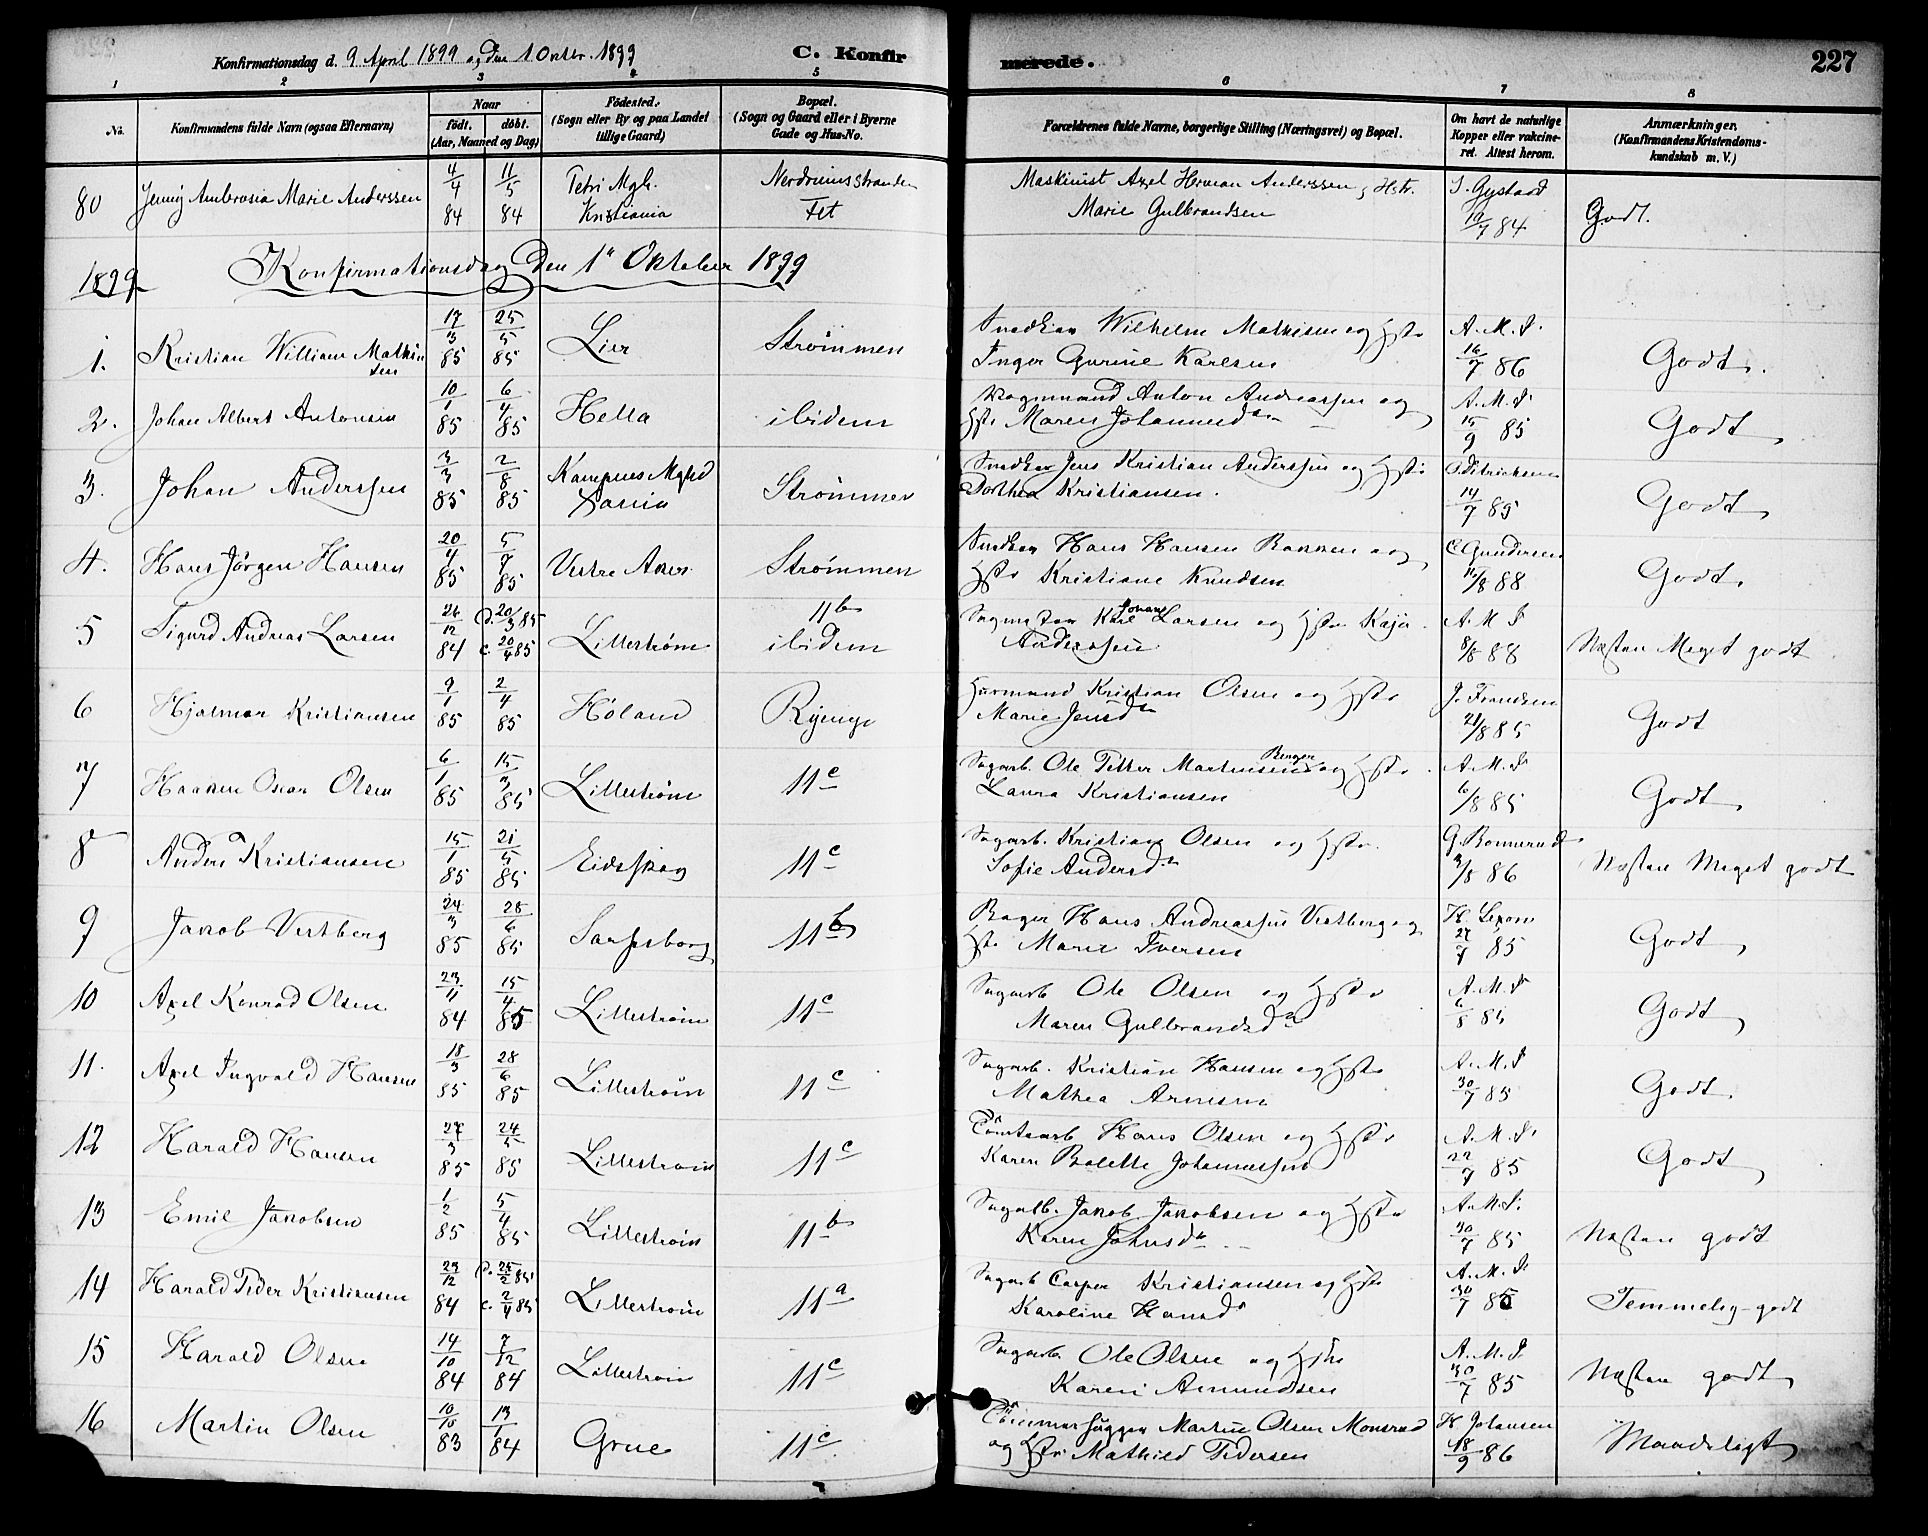 Konfirmationsdag d. 9 April 1899 og den 1 Oktbr. 1899
C. Konfir
merede.
227
1 2 3 4 5 6 7 8
No.
Konfirmandens fulde Navn (ogsaa Efternavn)
Naar
født. døbt.
(Aar, Maaned og Dag)
Fødested.
(Sogn eller By og paa Landet
tillige Gaard)
Bopæl.
(Sogn og Gaard eller i Byerne
Gade og Hus-No.
Forældrenes fulde Navne, borgerlige Stilling (Næringsvei) og Bopæl.
Om havt de naturlige
Kopper eller vaksine-
ret. Attest herom.
Anmærkninger.
(Konfirmandens Kristendoms-
kundskab m. V.)
80 Jenny Ambrosia Marie Anderssen 4/4 84 11/5 84 Petri Mgh. Kristiania Nordrumsstranden Fet Maskinist Axel Herman Anderssen og Hstr. Marie Gulbrandsen J. Gystad 19/7 84 Godt.
1899 Konfirmationsdag Den 1ste Oktober 1899
1. Kristian William Mathisen 17/3 85 25/5 85 Lier Strømmen Snedker Wilhelm Mathisen og Hstr Inger Gurine Karlsen A. M. S. 16/7 86 Godt.
2. Johan Albert Antonsen 10/1 85 6/4 85 Hella ibidem Vognmand Anton Andreassen og Hstr Maren Johannesdtr A. M. S. 15/9 85 Godt
3. Johan Anderssen 3/3 85 2/8 85 Kampens Mghd Xania Strømmen Snedker Jens Kristian Anderssen og Hstr Dorthea Kristiansen. 14/7 85 Godt
4. Hans Jörgen Hansen 20/4 85 5/7 85 Vestre Aker Strømmen Snedker Hans Hansen Bakken og Hstr Kristiane Knudsen C Gundersen 12/8 88 Godt.
5 Sigurd Andreas Larsen 26/12 84 d. 20/3 85 c. 20/4 85 Lillestrøm 11b ibidem Karl Johan Larsen og Hstr Kaja Anderssen A. M S 8/8 88 Næsten Meget godt
6 Hjalmar Kristiansen 9/1 85 2/4 85 Høland Ryenge Husmand Kristian Olsen og Hstr Marie Jensdtr J. Frandsen 21/8 85 Godt
7 Haaken Oscar Olsen 6/1 85 15/3 85 Lillestrøm 11c Sagarb. Ole Petter Martinsen Bergen og Hstr Laura Kristiansen A. M. S 6/8 85 Godt
8 Anders Kristiansen 15/1 85 21/5 85 Eidsskog 11c Sagarb. Kristian Olsen og Hstr. Sofie Andersdtr G. Bonnerud 3/8 86 Næsten Meget godt
9 Jakob Vestberg 24/3 85 28/6 85 Sarpsborg 11b Bager Hans Andreassen Vestberg og Hstr Marie Iversen H. Lexow 27/7 85 Godt
10 Axel Konrad Olsen 23/11 84 15/4 85 Lillestrøm 11c Sagarb Ole Olsen og Hstr Maren Gulbrandsdtr A. M. S 6/8 85 Godt
11. Axel Ingvald Hansen 18/3 85 28/6 85 Lillestrøm 11c Sagarb. Kristian Hansen og Hstr Mathea Arnesen A. M. S 30/7 85 Godt
12 Harald Hansen 27/3 85 24/5 85 Lillestrøm 11c Tomtearb Hans Olsen og Hstr Karen Bolette Johannessen A. M. S. 22/7 85 Godt
13 Emil Jakobsen 1/2 85 5/4 85 Lillestrøm 11b Sagarb. Jakob Jakobsen og Hstr Karen Johnsdtr A. M. S. 30/7 85 Næsten godt
14 Harald Peder Kristiansen 29/12 84 d. 25/2 85 c. 2/4 85 Lillestrøm 11a Sagarb Casper Kristiansen og Hstr Karoline Hansdtr A. M. S 30/7 85 Temmelig godt
15 Harald Olsen 14/10 84 7/12 84 Lillestrøm 11c Sagarb. Ole Olsen og Hstr Karen Amundsen A. M. S 30/7 85 Næsten godt
16 Martin Olsen 10/10 83 13/1 84 Grue 11c Tømmerhugger Martin Olsen Monsrud og Hstr Mathild Pedersen H Johansen 18/9 86 Maadeligt